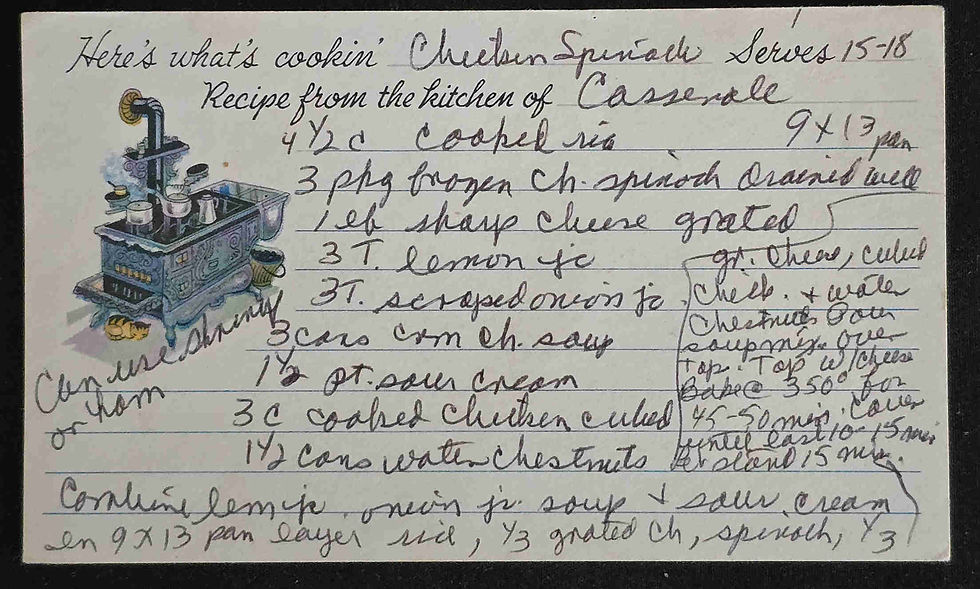 Here's what's cookin' Chicken Spinach Serves 15-18
Recipe from the kitchen of Casserole
4 1/2 c cooked rice 9 x 13 pan
3 pkg frozen ch. spinach drained well
1 lb sharp cheese grated
3 T. lemon jc
3 T. scraped onion jc
3 cans crm ch. soup
1 1/2 pt. sour cream
3 c cooked chicken cubed
1 1/2 cans water chestnuts
Can use shrimp
or ham
Combine lem jc. onion jc. soup + sour cream
in 9 x 13 pan layer rice, 1/3 grated ch, spinach, 1/3
gr. cheese, cubed
chick. + water
chestnuts Pour
soup mix over
top. Top w/ cheese
Bake @ 350° for
45-50 min. Cover
until last 10-15 min
Let stand 15 min.